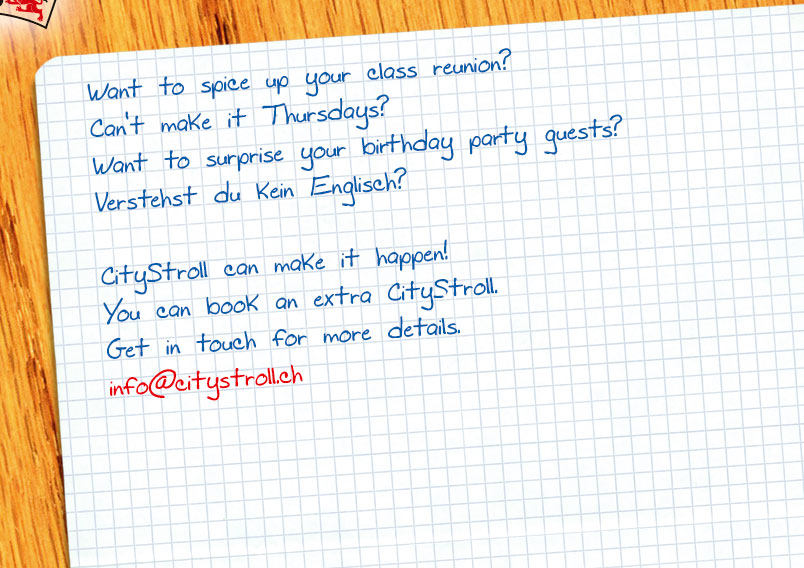 Want to spice up your class reunion?
Can't make it Thursdays?
Want to surprise your birthday party guests?
Verstehst du Kein Englisch?
CityStroll can make it happen!
You can book an extra CityStroll.
Get in touch for more details.
info@citystroll.ch